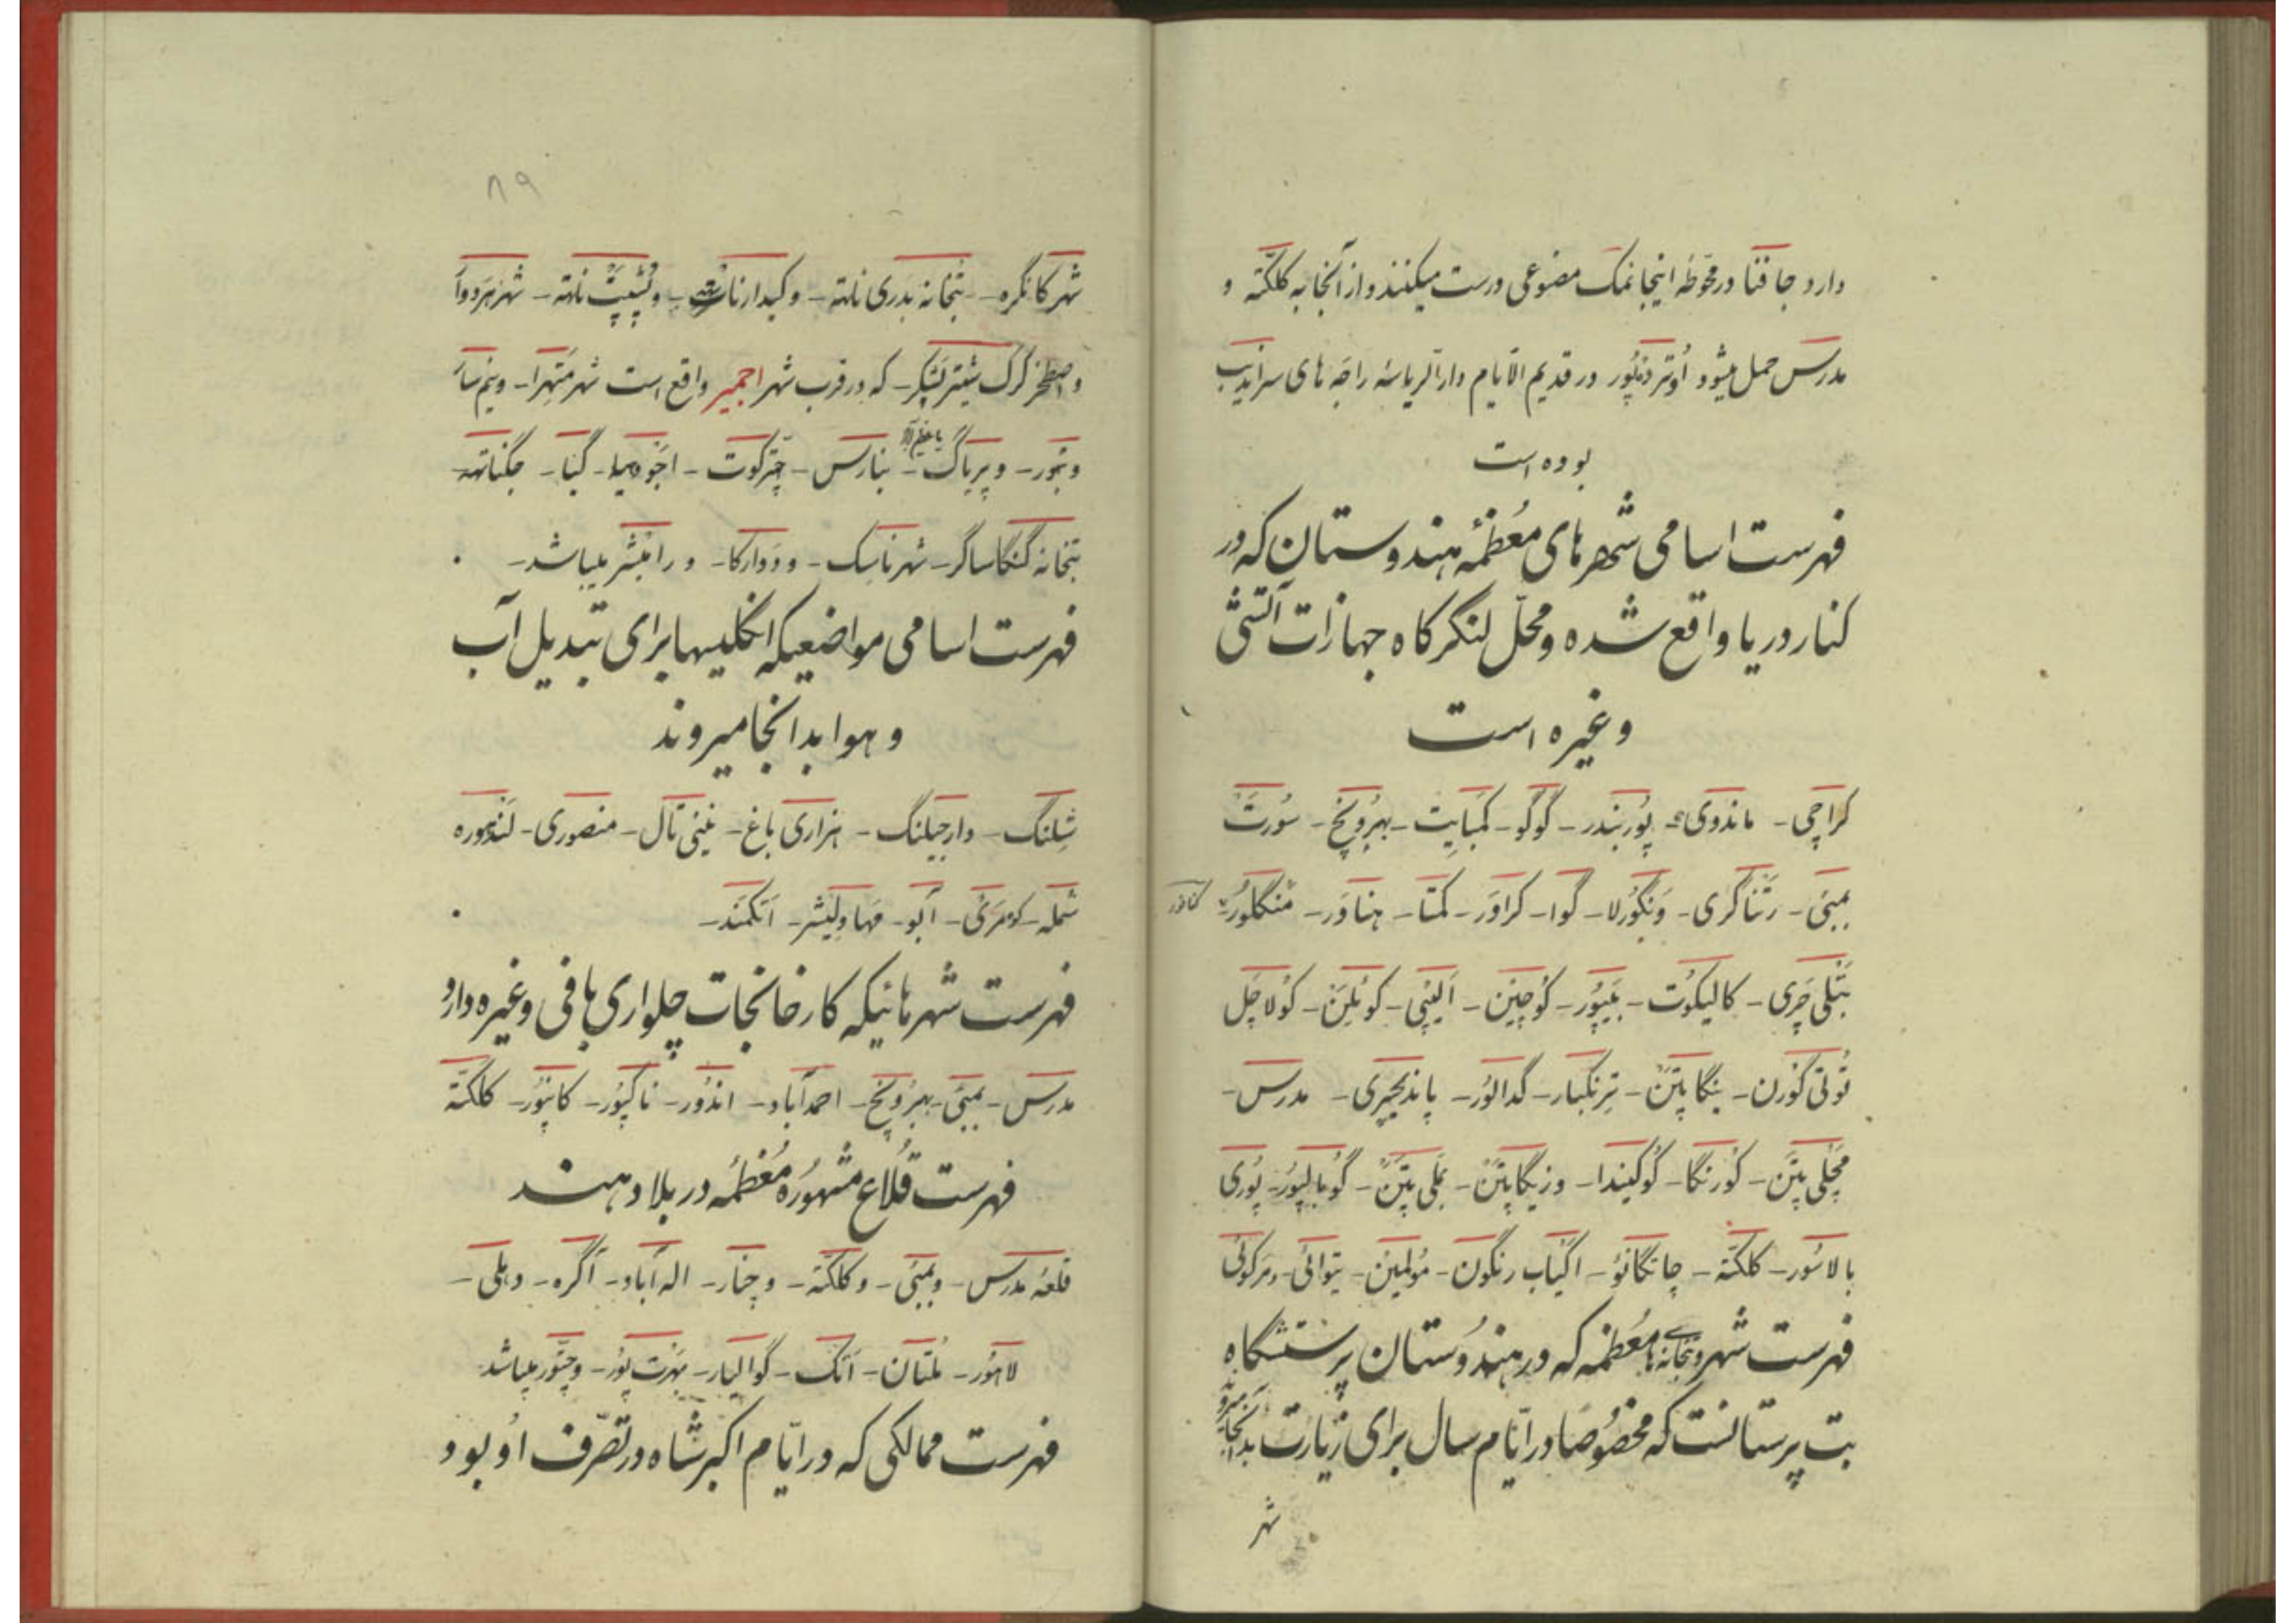 دارد جافنا در محوّطه اینجا نمک مصنوعی درست میکنند و از آنجا به کلکتّه و
مدرس حمل میشود اُوتردنپُور در قدیم الایّام دارالریاسهٔ راجه های سراندیب
بوده است
فهرست اسامی شهرهای مُعظمهٔ هندوستان که در
کنار دریا واقع شده و محلّ لنگرکاه جهازات آتشی
و غیره است
کراچی - ماندوی - پُوربندر - گوگو - کمبایِت - بهرُونچ - سُورت
بمبئی - رتناگری - ونگورلا - گوا - کراوَر - کمتا - هناوَر - منگلُور - کنانور
تتلی چری - کالیکوت - بیپُور - کوچین - الیپی - کوئلِن - کولاچَل
تُوتی کورن - نگاپتن - ترنکبار - گدالُور - پاندیچیری - مدرس -
مچلی پتن - کورنگا - کوکیندا - وزیگاپتن - بملی پتن - گوپالپُور - پُوری
بالاسُور - کلکتّه - چاتگانو - اکیاب رنگون - مُولمین - تیوائی - مرکوئی
فهرست شهر و بتخانه های مُعظمه که در هندُوستان پرستشگاه
بت پرستانست که مخصُوصا در ایّام سال برای زیارت بدانجا میروند
شهر
۸۹
شهر کانگره - بتخانه بدری ناته - و کیدارنات - و پشپت ناته - شهر هردوآ
و اصطخر گرک شیتر پشکر - که در قرب شهر اجمیر واقع است شهر متهرا - و نیم سار
و بتور - و پریاگ - بنارس - چترکوت - اجودهیا - گیا - جگناتهه
بتخانه گنگاساگر - شهر ناسک - و دوارکا - و رامیشر میباشد -
فهرست اسامی مواضعیکه انگلیسها برای تبدیل آب
و هوا بدانجا میروند
شِلنگ - دارجیلنگ - هزاری باغ - نینی تال - منصوری - لندهوره
شمله - کومرئی - آبو - مهاولیشر - اتکمند -
فهرست شهرهائیکه کارخانجات چلواری بافی و غیره دارد
مدرس - بمبئی - بهرُونچ - احمدآباد - اندُور - ناکپُور - کانپُور - کلکتّه
فهرست قُلاع مشهُورهٔ مُعظمُه در بلاد هند
قلعهٔ مدرس - و بمبئی - و کلکتّه - و چنار - اله آباد - آگره - دهلی -
لاهُور - مُلتان - اتک - گوالیار - بهرت پُور - و چتور میباشد
فهرست ممالکی که در ایّام اکبر شاه در تصّرف اُو بود